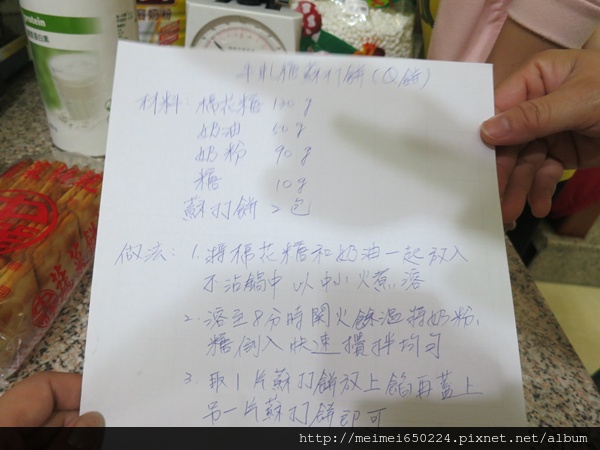 牛軋糖蘇打餅(Q餅)
材料:棉花糖 100g
奶油 50g
奶粉 90g
糖 10g
蘇打餅 2包
做法:1.將棉花糖和奶油一起放入
不沾鍋中以中小火煮溶
2.溶至8分時関火餘溫將奶粉、
糖倒入快速攪拌均勻
3.取1片蘇打餅放上餡再蓋上
另一片蘇打餅即可
http://meimei650224.pixnet.net/album